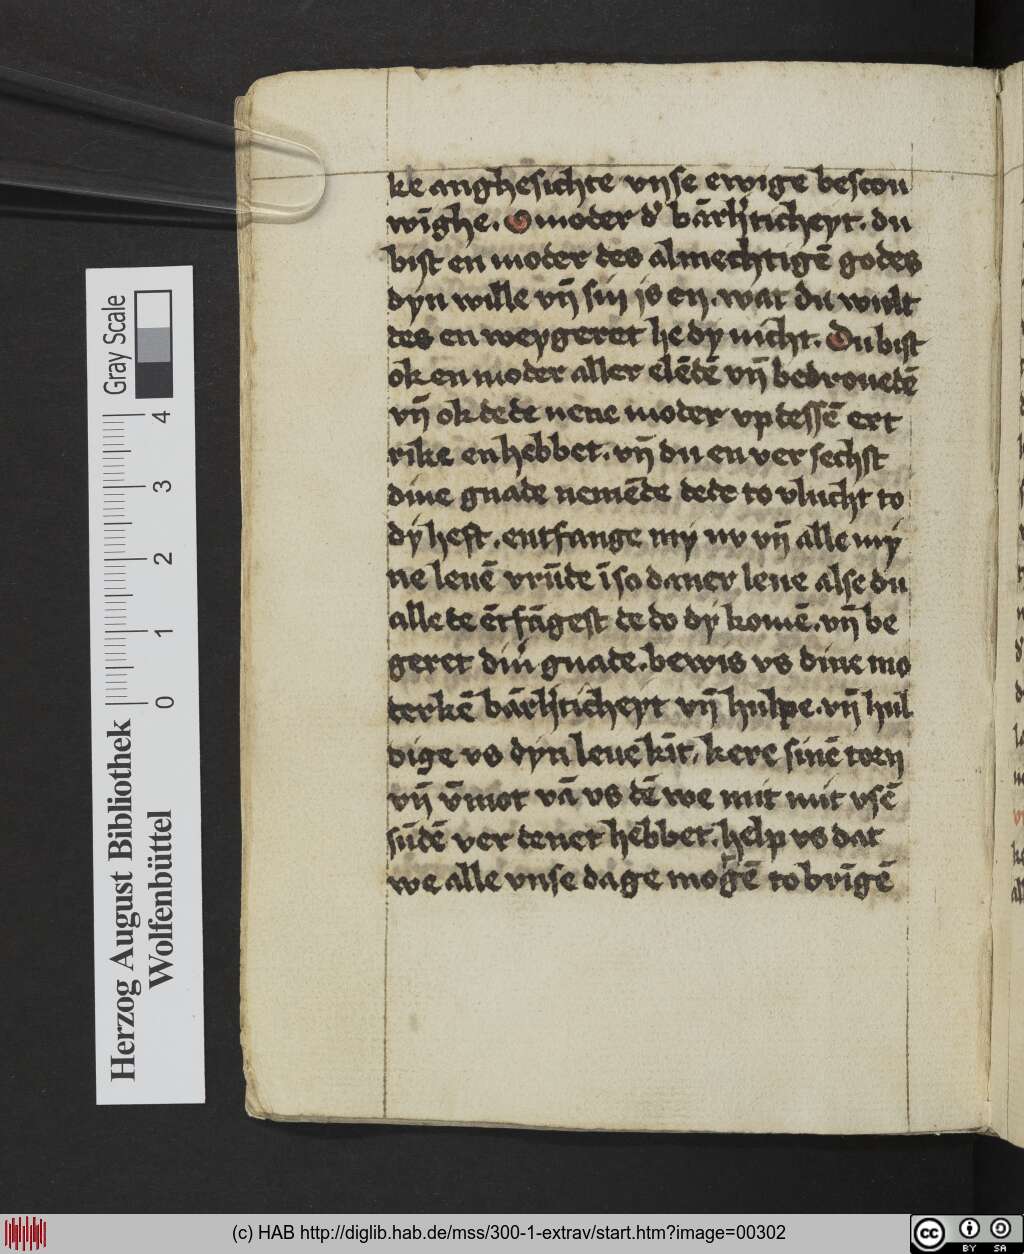 ke anghesichte vnse ewige bescou
wīghe. O moder d' bārh'ticheyt. du
bist en moder des almechtigē godes
dyn wille vn̄ sin is en. wat du wult
des en weygeret he dy nicht. Du bist
ok en moder aller elēdē vn̄ bedrouedē
vn̄ ok de de nene moder vp dessē ert
rike en hebbet. vn̄ du en versechst
dine gnade nemēde dede to vlucht to
dy heft. entfange my nv vn̄ alle my
ne leuē vrūde ī so daner leue alse du
alle de ētfāgest de do dy komē. vn̄ be
geret din' gnade. bewis vs dine mo
derkē bārh'ticheyt vn̄ hulpe. vn̄ hul
dige vs dyn leue kīt. kere sinē toen
vn̄ v̄mot vā vs dē we mit mit vsē
sūdē ver denet hebbet. help vs dat
we alle vnse dage mogē to brīgē
Gray Scale
4
3
2
1
0
Herzog August Bibliothek
Wolfenbüttel
(c) HAB http://diglib.hab.de/mss/300-1-extrav/start.htm?image=00302
cc
BY SA